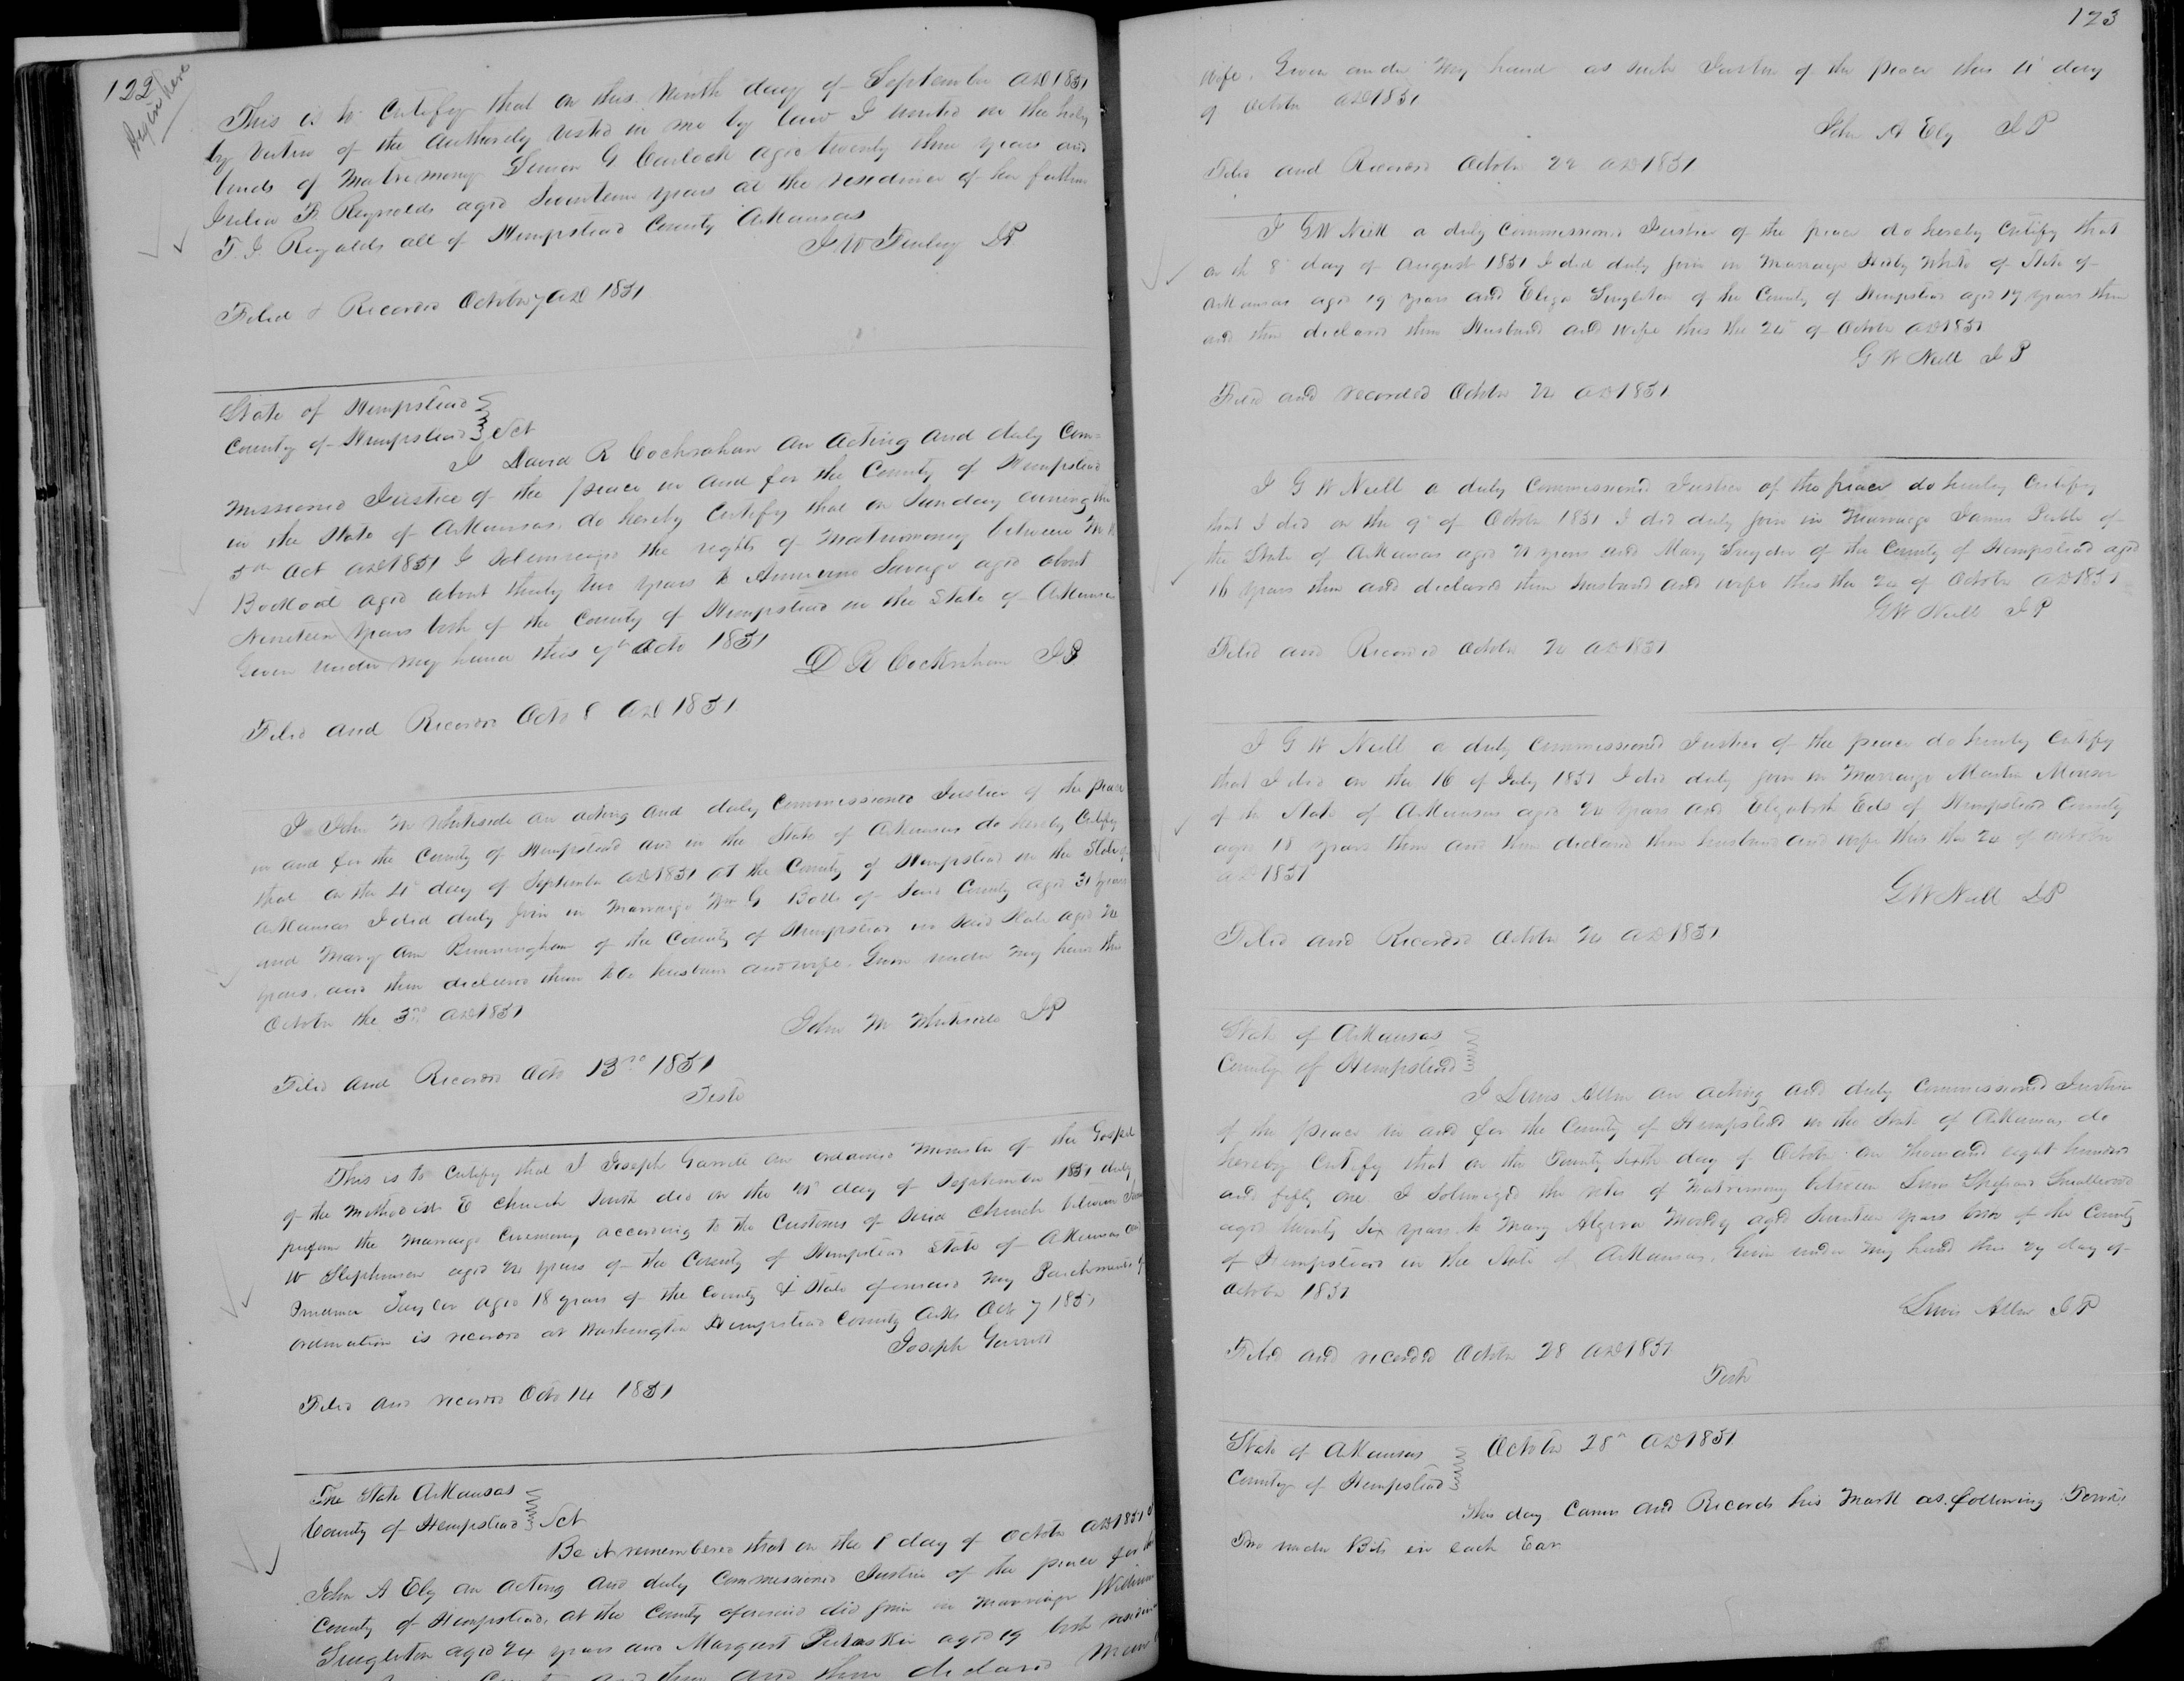 122
Begin here
This is to Certify that on this ninth day of September AD 1851
by virtue of the Authority vested in me by law I united in the holy
bonds of Matrimony G Carlock aged twenty three years and
Julia F Reynolds aged Seventeen years at the residence of her father
T. J. Reynolds all of Hempstead County Arkansas
J. W. Finley JP
Filed & Recorded October 7 AD 1851
State of Hempstead
County of Hempstead Sct
I David R Cochrahan an acting and duly Com=
missioned Justice of the peace in and for the County of Hempstead
in the State of Arkansas do hereby Certify that on Sunday evening the
5th Oct AD 1851 I Solemnized the rights of Matrimony between
aged about thirty two years to Savage aged about
Nineteen years both of the County of Hempstead in the State of Arkansas
Given under my hand this 7th Octo 1851
D R Cockraham JP
Filed and Recorded Octo 8 AD 1851
I John M Whiteside an acting and duly Commissioned Justice of the peace
in and for the County of Hempstead and in the State of Arkansas do hereby Certify
that on the 4th day of September AD 1851 at the County of Hempstead in the State of
Arkansas I did duly Join in Marriage Wm G of Said County aged 31 years
and Mary Ann of the County of Hempstead in Said State aged 24
years, and then declared them to be husband and wife. Given under my hand this
October the 3rd AD 1851
John M Whiteside JP
Filed and Recorded Octo 13rd 1851
Teste
This is to Certify that I Joseph Garrett an ordained Minister of the Gospel
of the Methodist E Church South did on the day of September 1851 duly
perform the Marriage Ceremony according to the Customs of Said Church between
W Stephenson aged 24 years of the County of Hempstead State of Arkansas and
Prudence Taylor aged 18 years of the County & State aforesaid My Parchments of
ordination is recorded at Washington Hempstead County Arks Oct 7 1851
Joseph Garrett
Filed and recorded Octo 14 1851
The State Arkansas
County of Hempstead Sct
Be it remembered that on the 8 day of October AD 1851 I
John A Ely an acting and duly Commissioned Justice of the peace for the
County of Hempstead, at the County aforesaid did Join in marriage William
Singleton aged 24 years and Margaret aged 19 both
County and then and there declared
123
wife. Given under My hand as such Justice of the peace this 11th day
of October AD 1851
John A Ely JP
Filed and Recorded October 22 AD 1851
I G W Neill a duly Commissioned Justice of the peace do hereby Certify that
on the 8th day of August 1851 I did duly Join in Marriage White of State of
Arkansas aged 19 years and Eliza Singleton of the County of Hempstead aged 19 years then
and then declared them Husband and wife this the 24 of October AD 1851
G W Neill JP
Filed and recorded October 24 AD 1851
I G W Neill a duly Commissioned Justice of the peace do hereby Certify
that I did on the 9th of October 1851 I did duly Join in Marriage James of
the State of Arkansas aged 21 years and Mary Snyder of the County of Hempstead aged
16 years then and declared them husband and wife this the 24 of October AD 1851
G W Neill JP
Filed and Recorded October 24 AD 1851
I G W Neill a duly Commissioned Justice of the peace do hereby Certify
that I did on the 16 of July 1851 I did duly Join in Marriage Martin
of the State of Arkansas aged 24 years and Elizabeth of Hempstead County
aged 18 years then and then declared them husband and wife this the 24 of October
AD 1851
G W Neill JP
Filed and Recorded October 24 AD 1851
State of Arkansas
County of Hempstead
I Lewis Allen an acting and duly Commissioned Justice
of the peace in and for the County of Hempstead in the State of Arkansas do
hereby Certify that on the Twenty Sixth day of October one Thousand eight hundred
and fifty one I Solemnized the rites of Matrimony between Smallwood
aged twenty Six years to Mary aged Seventeen years both of the County
of Hempstead in the State of Arkansas. Given under my hand this 27 day of
October 1851
Lewis Allen JP
Filed and recorded October 28 AD 1851
Teste
State of Arkansas
County of Hempstead
October 28th AD 1851
This day Came and Records his Mark as following Towit,
Two under Bits in each Ear